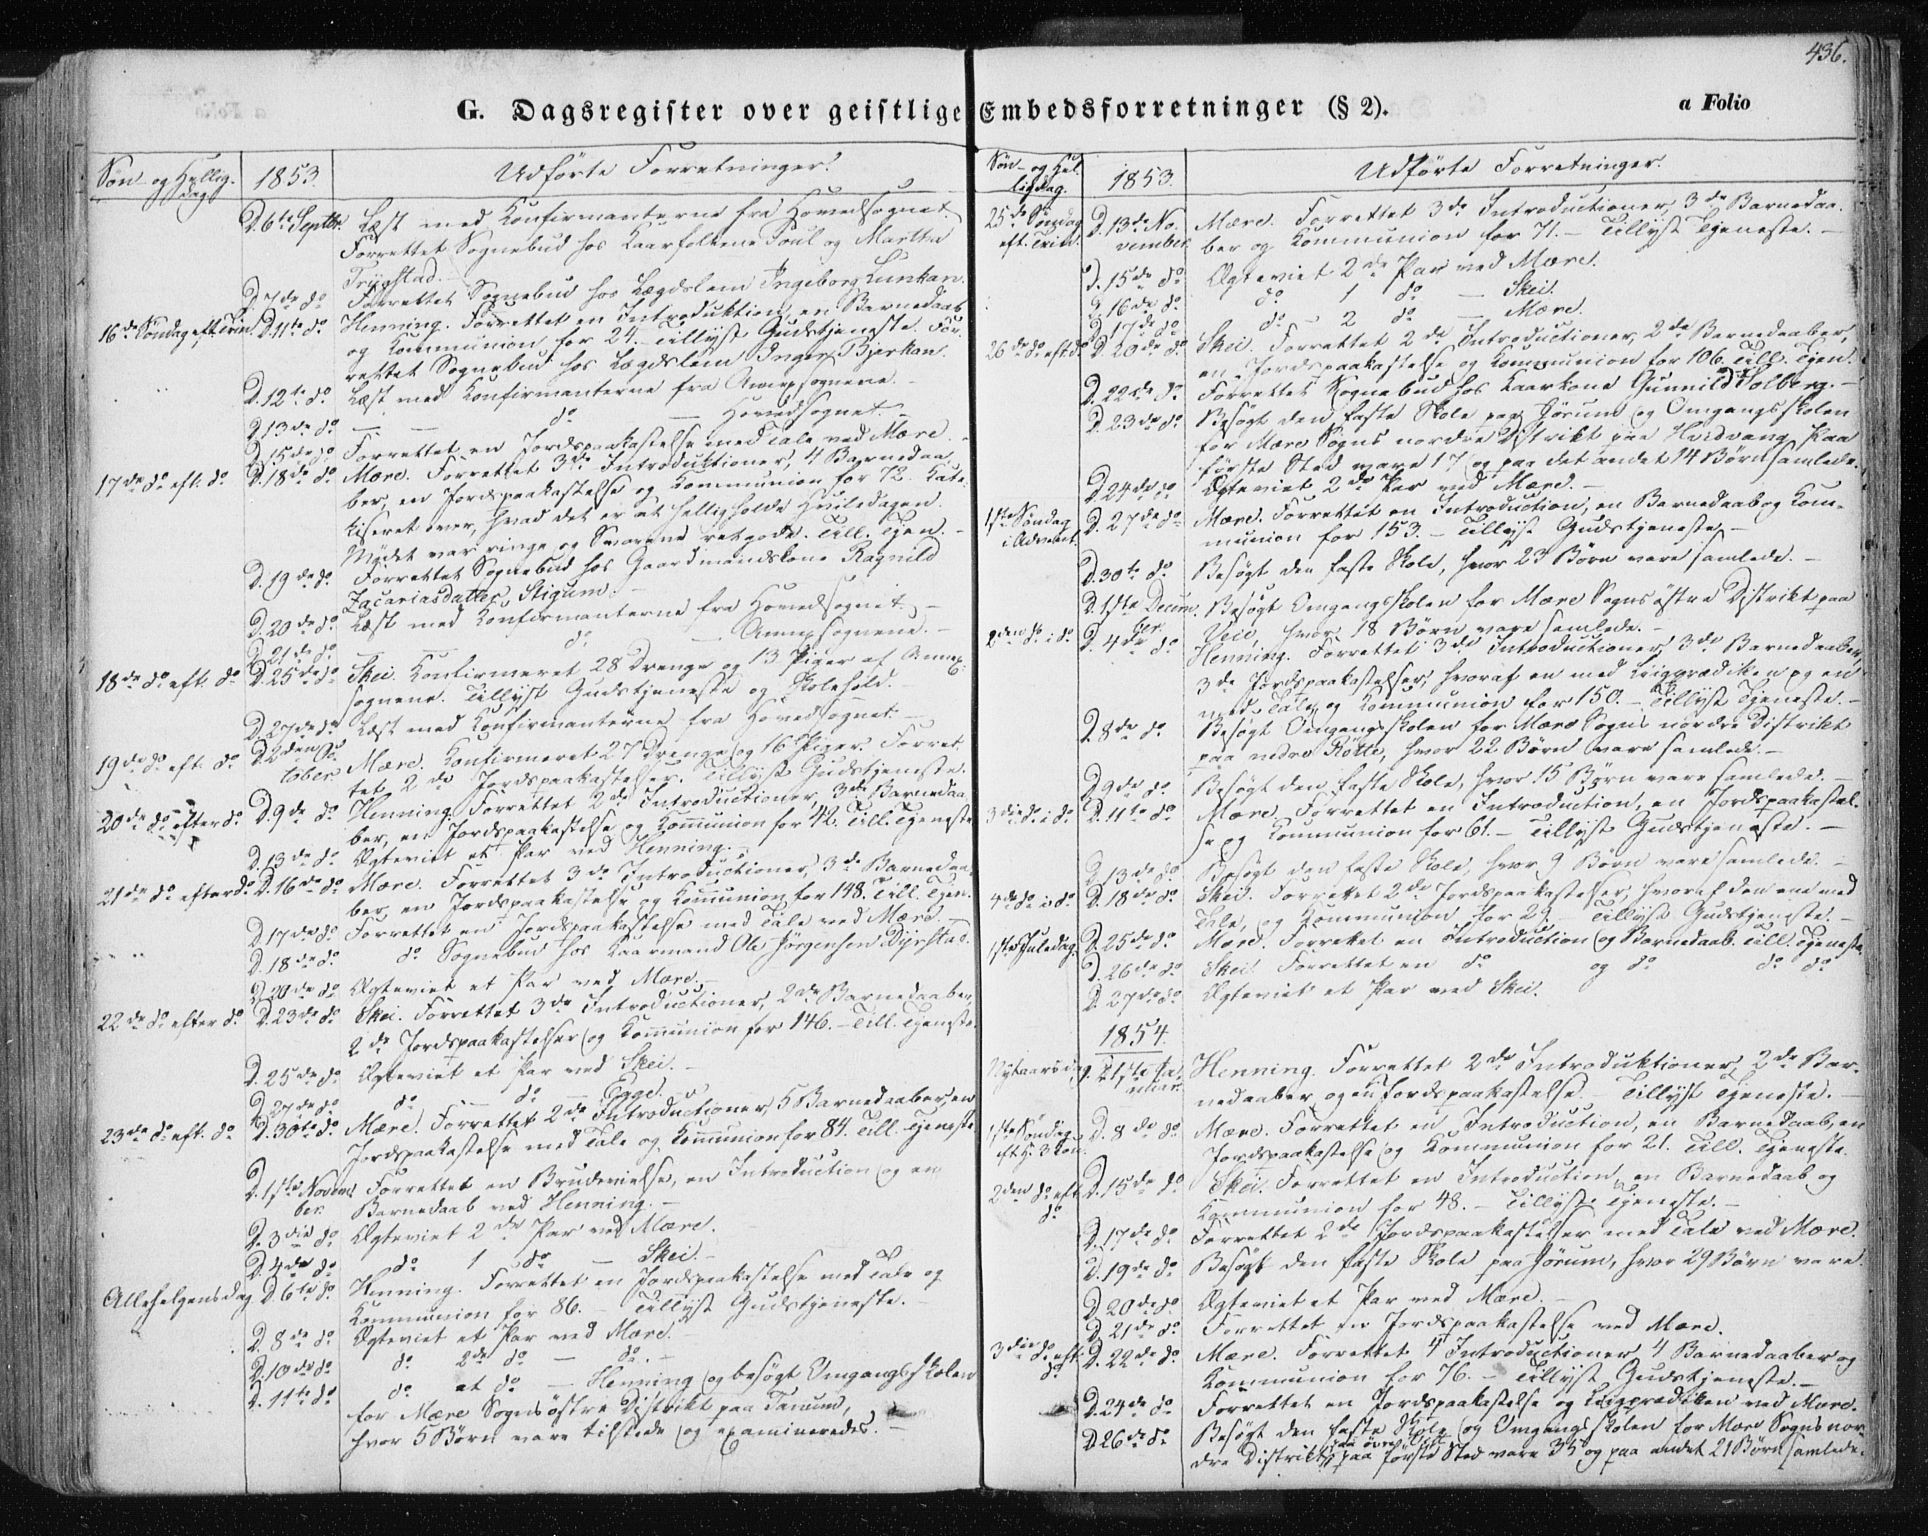 436.
G. Dagsregister over geistlige Embedsforretninger (§ 2).
a Folio
Søn- og Hellig-
dag.
1853.
Udførte Forretninger.
D. 6te Septbr. Læst med Konfirmanterne fra Hovedsognet.
Forrettet Sognebud hos Kaarfolkene Poul og Martha
Trygstad.
D. 7de do Forrettet Sognebud hos Lægdslem Ingeborg Lunkan.
16de Søndag eft. Trin. D. 11te do Henning. Forrettet en Introduktion, en Barnedaab
og Kommunion for 24. Tillyst Gudstjeneste. For-
rettet Sognebud hos Lægdslem Inger Bjerkan.
D. 12te do Læst med Konfirmanterne fra Annexsognene.
D. 13de do — — do — Hovedsognet.
D. 15de do Forrettet en Jordspaakastelse med Tale ved Mære.
17de do eft. do D. 18de do Mære. Forrettet 3de Introductioner, 4 Barnedaa-
ber, en Jordspaakastelse og Kommunion for 72. Kate-
kiseret over, hvad det er at helligholde Hviledagen.
Mødet var ringe og Svarene ret gode. Till. Tjen.
D. 19de do Forrettet Sognebud hos Gaardmandskone Ragnild
Zacariasdatter, Stigum.
D. 20de do Læst med Konfirmanterne fra Hovedsognet.
D. 21de do — do — Annexsognene.
18de do eft. do D. 25de do Skei. Konfirmeret 28 Drenge og 13 Piger af Annex-
sognene. Tillyst Gudstjeneste og Skolehold.
D. 27de do Læst med Konfirmanterne fra Hovedsognet.
19de do eft. do D. 2den Oc-
tober Mære. Konfirmeret 27 Drenge og 16 Piger. Forret-
tet 2de Jordspaakastelser. Tillyst Gudstjeneste.
20de do efter do D. 9de do Henning. Forrettet 2de Introductioner, 3de Barnedaa-
ber, en Jordspaakastelse og Kommunion for 42. Till. Tjeneste
D. 13de do Ægteviet et Par ved Henning.
21de do efter do D. 16de do Mære. Forrettet 3de Introductioner, 3de Barnedaa-
ber, en Jordspaakastelse og Kommunion for 148. Till. Tjen.
D. 17de do Forrettet en Jordspaakastelse med Tale ved Mære.
D. 18de do do Sognebud hos Kaarmand Ole Jørgensen Dyrstad.
D. 20de do Ægteviet et Par ved Mære.
22de do efter do D. 23de do Skei. Forrettet 3de Introductioner, 2de Barnedaaber,
2de Jordspaakastelser og Kommunion for 146. — Till. Tjeneste.
D. 25de do Ægteviet et Par ved Skei.
D. 27de do do — do — Egge.
23de do eft. do D. 30te do Mære. Forrettet 2de Introductioner, 5 Barnedaaber, en
Jordspaakastelse med Tale og Kommunion for 84. Till. Tjeneste
D. 1ste Novem-
ber. Forrettet en Brudevielse, en Introduction og en
Barnedaab ved Henning.
D. 3die do Ægteviet 2de Par ved Mære.
D. 4de do do 1 do — Skei.
Allehelgensdag D. 6te do Henning. Forrettet en Jordspaakastelse med Tale og
Kommunion for 86. — Tillyst Gudstjeneste.
D. 8de do Ægteviet et Par ved Mære.
D. 10de do do 2de do — do.
D. 11te do do et do — Henning og besøgt Omgangsskolen
for Mære Sogns østre Distrikt paa Tanum,
hvor 5 Børn vare tilstede og examineredes.
Søn- og Hel-
ligdag.
1853.
Udførte Forretninger.
25de Søndag
eft. Trin. D. 13de No-
vember Mære. Forrettet 3de Introductioner, 3de Barnedaa-
ber og Kommunion for 71. — Tillyst Tjeneste.
D. 15de do Ægteviet 2de Par ved Mære.
D. 16de do do 1 do — Skei.
D. 17de do do 2 do — Mære.
26de do eft. do D. 20de do Skei. Forrettet 2de Introductioner, 2de Barnedaaber,
en Jordspaakastelse og Kommunion for 106. Till. Tjen.
D. 22de do Forrettet Sognebud hos Kaarkone Gunnild Solberg.
D. 23de do Besøgt den faste Skole paa Jørum og Omgangsskolen
for Mære Sogns nordre Distrikt paa Hvedvang. Paa
første Sted vare 17 og paa det andet 14 Børn samlede.
D. 24de do Ægteviet 2de Par ved Mære.
1ste Søndag
i Advent. D. 27de do Mære. Forrettet en Introduction, en Barnedaab og Kom-
munion for 153. — Tillyst Gudstjeneste.
D. 30te do Besøgt den faste Skole, hvor 23 Børn vare samlede.
D. 1ste Decem-
ber. Besøgt Omgangsskolen for Mære Sogns østre Distrikt paa
Veie, hvor 18 Børn vare samlede.
2den do i do D. 4de do Henning. Forrettet 3de Introductioner, 3de Barnedaaber,
3de Jordspaakastelser, hvoraf en med Liigprædiken og en
med Tale, og Kommunion for 150. — Tillyst Tjeneste.
D. 8de do Besøgt Omgangsskolen for Mære Sogns nordre Distrikt
paa nedre Røtte, hvor 22 Børn vare samlede.
D. 9de do Besøgt den faste Skole, hvor 15 Børn vare samlede.
3die do i do D. 11te do Mære. Forrettet en Introduction, en Jordspaakastel-
se og Kommunion for 61. — Tillyst Gudstjeneste.
D. 13de do Besøgt den faste Skole, hvor 9 Børn vare samlede.
4de do i do D. 18de do Skei. Forrettet 2de Jordspaakastelser, hvoraf den ene med
Tale, og Kommunion for 29. — Tillyst Gudstjeneste.
1ste Juledag. D. 25de do Mære. Forrettet en Introduction og Barnedaab. Till. Tjeneste.
D. 26de do Skei. Forrettet en do og do do do
D. 27de do Ægteviet et Par ved Skei.
1854.
Nytaarsdag. D. 1ste Ja-
nuar. Henning. Forrettet 2de Introduktioner, 2de Bar-
nedaaber og en Jordspaakastelse. — Tillyst Tjeneste.
1ste Søndag
eft. H. 3 Kon. D. 8de do Mære. Forrettet en Introduction, en Barnedaab, en
Jordspaakastelse og Kommunion for 21. Till. Tjeneste.
2den do eft.
do D. 15de do Skei. Forrettet en Introduction, en Barnedaab og
Kommunion for 48. — Tillyst Tjeneste.
D. 17de do Forrettet 2de Jordspaakastelser med Tale ved Mære.
D. 19de do Besøgt den faste Skole paa Jørum, hvor 29 Børn vare.
D. 20de do Ægteviet et Par ved Mære.
D. 21de do Forrettet en Jordspaakastelse ved Mære.
3die do eft.
do D. 22de do Mære. Forrettet 4 Introductioner, 4 Barnedaaber og
Kommunion for 76. — Tillyst Gudstjeneste.
D. 24de do Forrettet en Jordspaakastelse og Liigprædiken ved Mære.
D. 26de do Besøgt den faste Skole og Omgangsskolen for Mære Sogns nor-
dre Distrikt paa øvre; paa første Sted vare 35 og paa andet 21 Børn samlede.